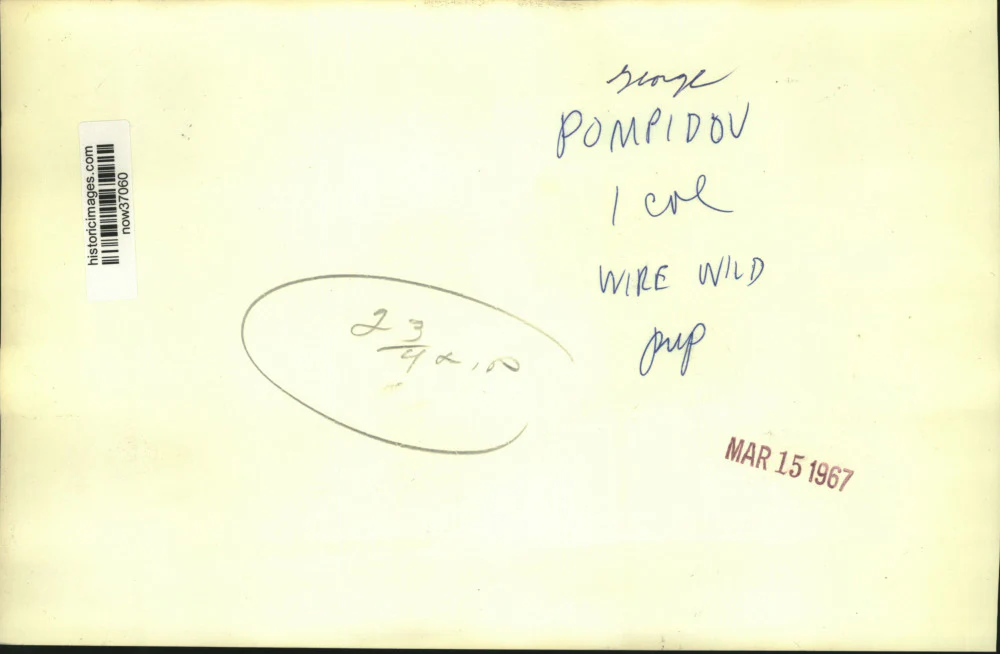 historicimages.com
now37060
George
POMPIDOU
1 col
WIRE WILD
pup
2 3/4 x
MAR 15 1967